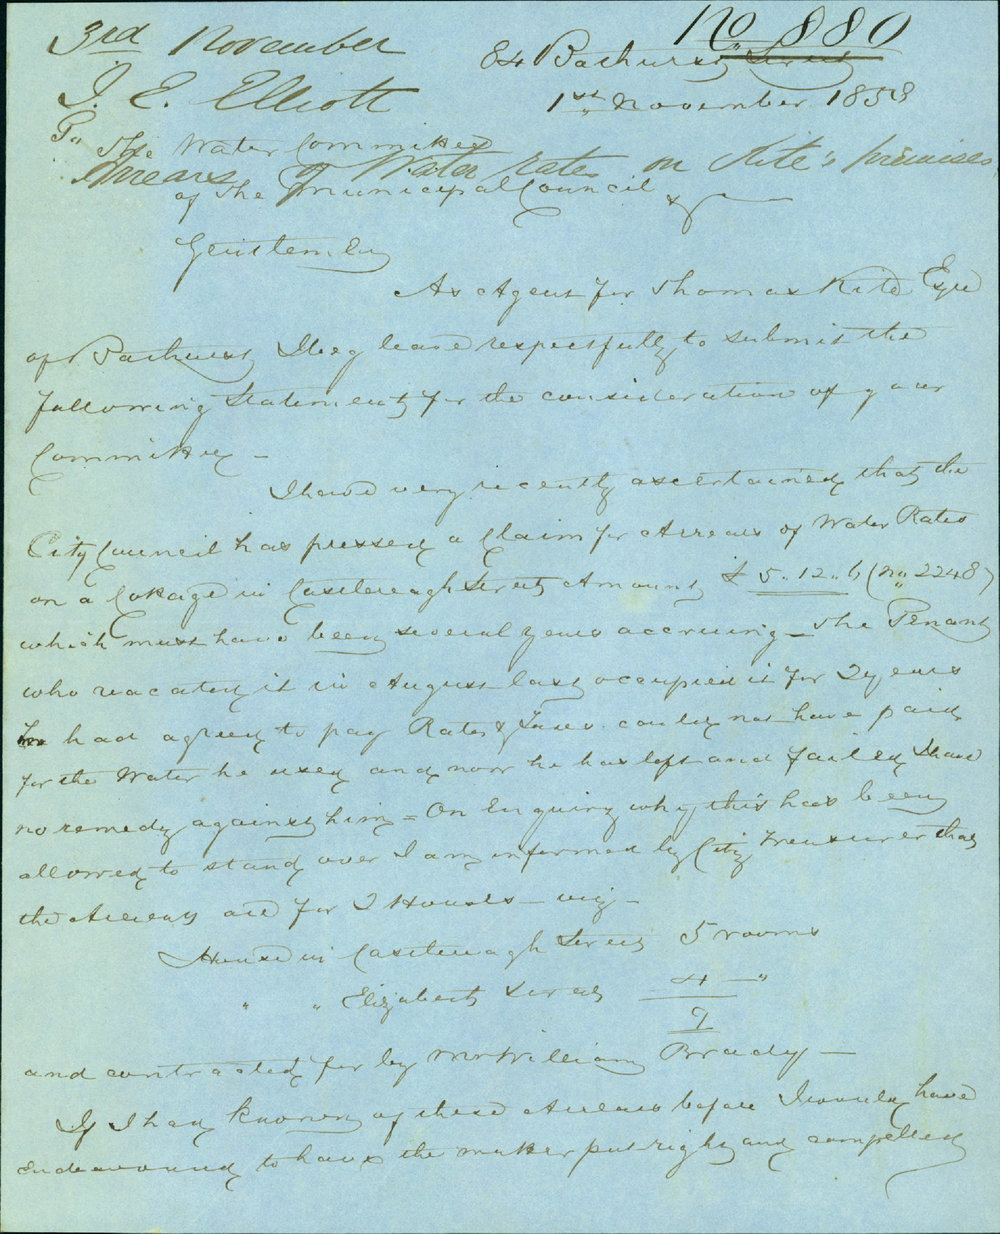 No 880
3rd November
84 Bathurst Street
J. E. Elliott
1st November 1858
To the Water Committee
Arrears of Water rates on Kite's premises
of the Municipal Council
Gentlemen
As Agent for Thomas Kite Esqre
of Bathurst I beg leave respectfully to submit the
following Statement for the consideration of your
Committee –
I have very recently ascertained that the
City Council has pressed a Claim for Arrears of Water Rates
on a Cottage in Castlereagh Street Amount £5..12..6 (No 2248)
which must have been several years accruing – The Tenant
who vacated it in August last occupied it for 2 years
had agreed to pay Rates & Taxes could not have paid
for the Water he used and now he has left and failed I have
no remedy against him = On Enquiring why this has been
allowed to stand over I am informed by City Treasurer that
the Arrears are for 2 Houses – viz –
House in Castlereagh Street 5 rooms
" " Elizabeth Street 4 — "
9
and contracted for by Mr William Brady —
If I had known of these Arrears before I would have
endeavoured to have the matter put right and compelled